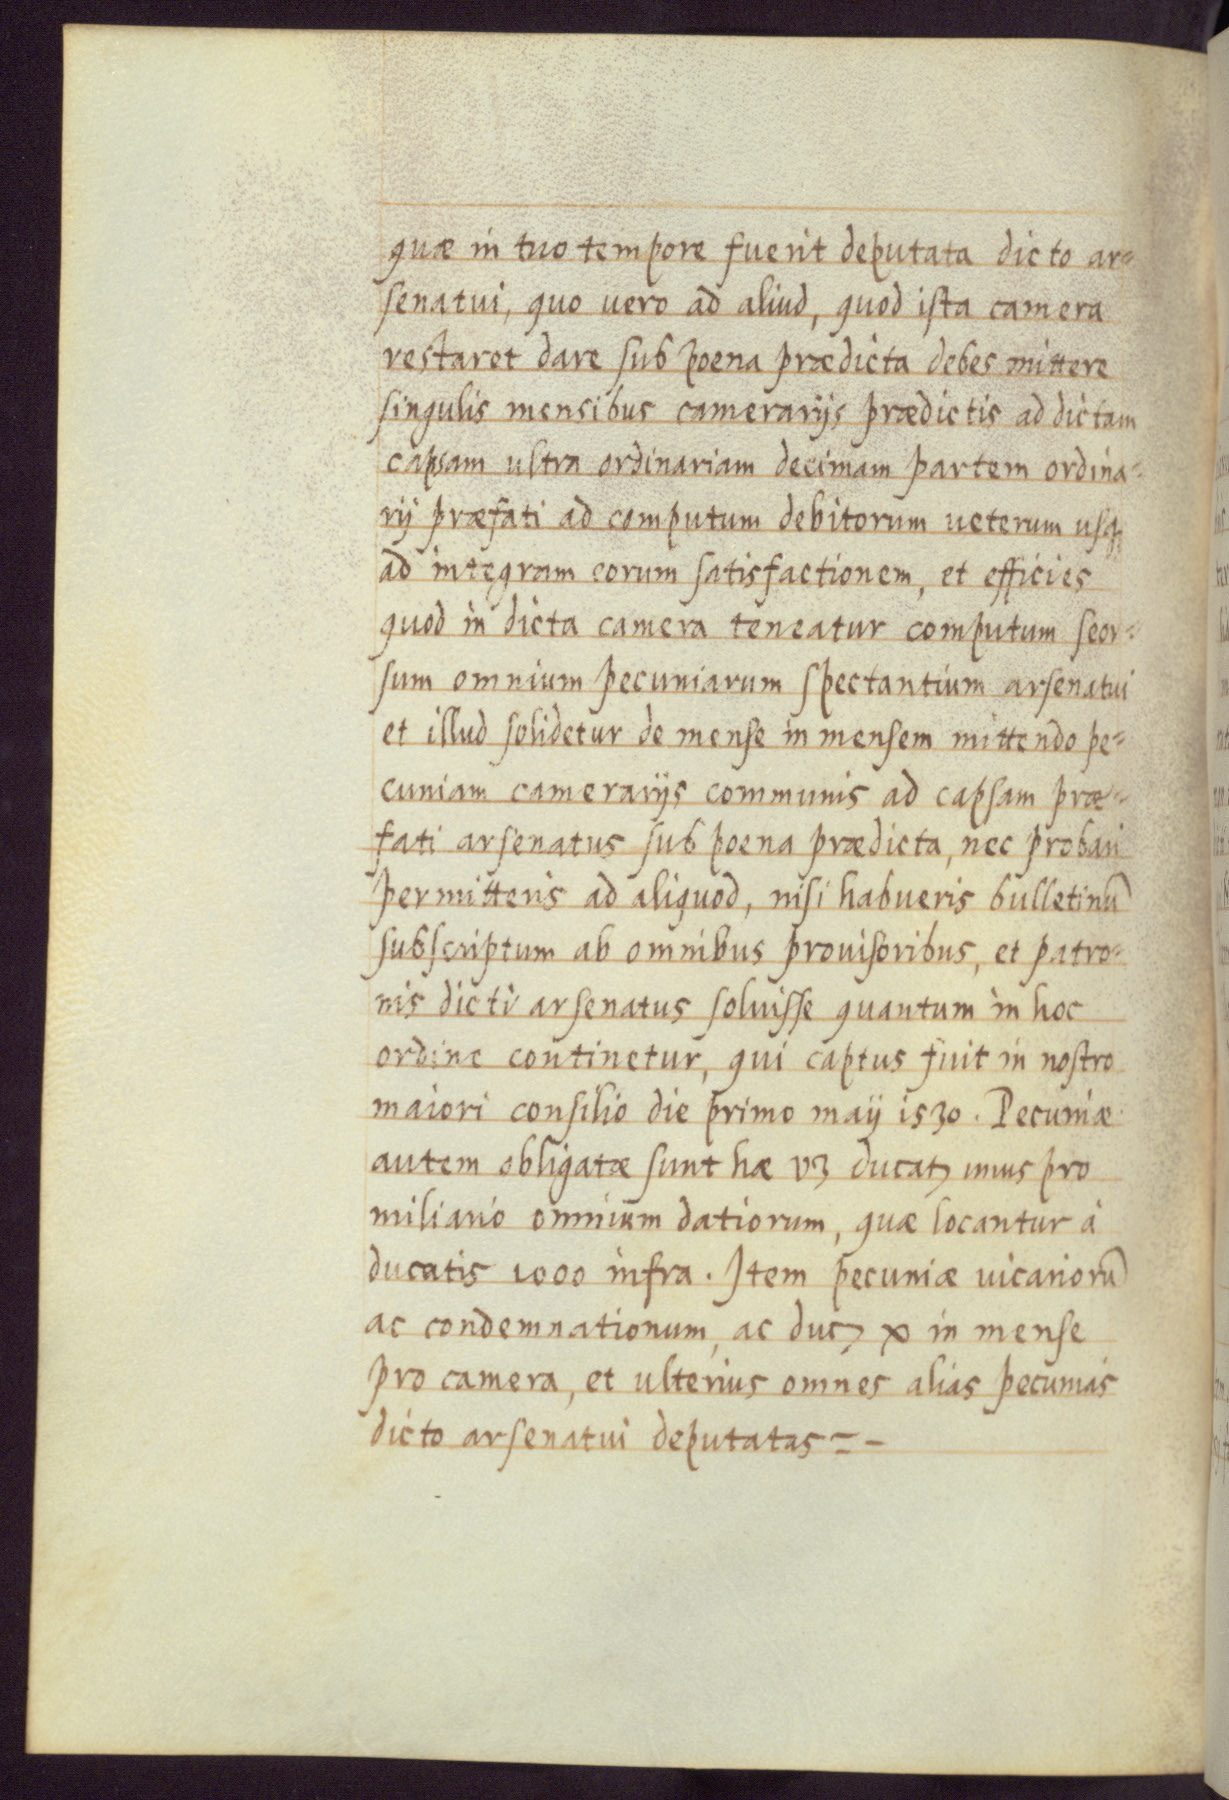 quæ in tuo tempore fuerit deputata dicto ar=
senatui, quo vero ad aliud, quod ista camera
restaret dare sub poena prædicta debes mittere
singulis mensibus camerarijs prædictis ad dictam
capsam ultra ordinariam decimam partem ordina=
rij præfati ad computum debitorum ueterum usq;
ad integram eorum satisfactionem, et efficies
quod in dicta camera teneatur computum seor=
sum omnium pecuniarum spectantium arsenatui
et illud solidetur de mense in mensem mittendo pe=
cuniam camerarijs communis ad capsam præ=
fati arsenatus sub poena prædicta, nec probari
permitteris ad aliquod, nisi habueris bulletinū
subscriptum ab omnibus prouisoribus, et patro=
nis dicti arsenatus soluisse quantum in hoc
ordine continetur, qui captus fuit in nostro
maiori consilio die primo maij 1530. Pecuniæ
autem obligatæ sunt hæ vꝫ ducatꝫ unus pro
miliario omnium datiorum, quæ locantur à
ducatis 1000 infra. Item pecuniæ uicariorū
ac condemnationum, ac ducꝫ x in mense
pro camera, et ulterius omnes alias pecunias
dicto arsenatui deputatas = -